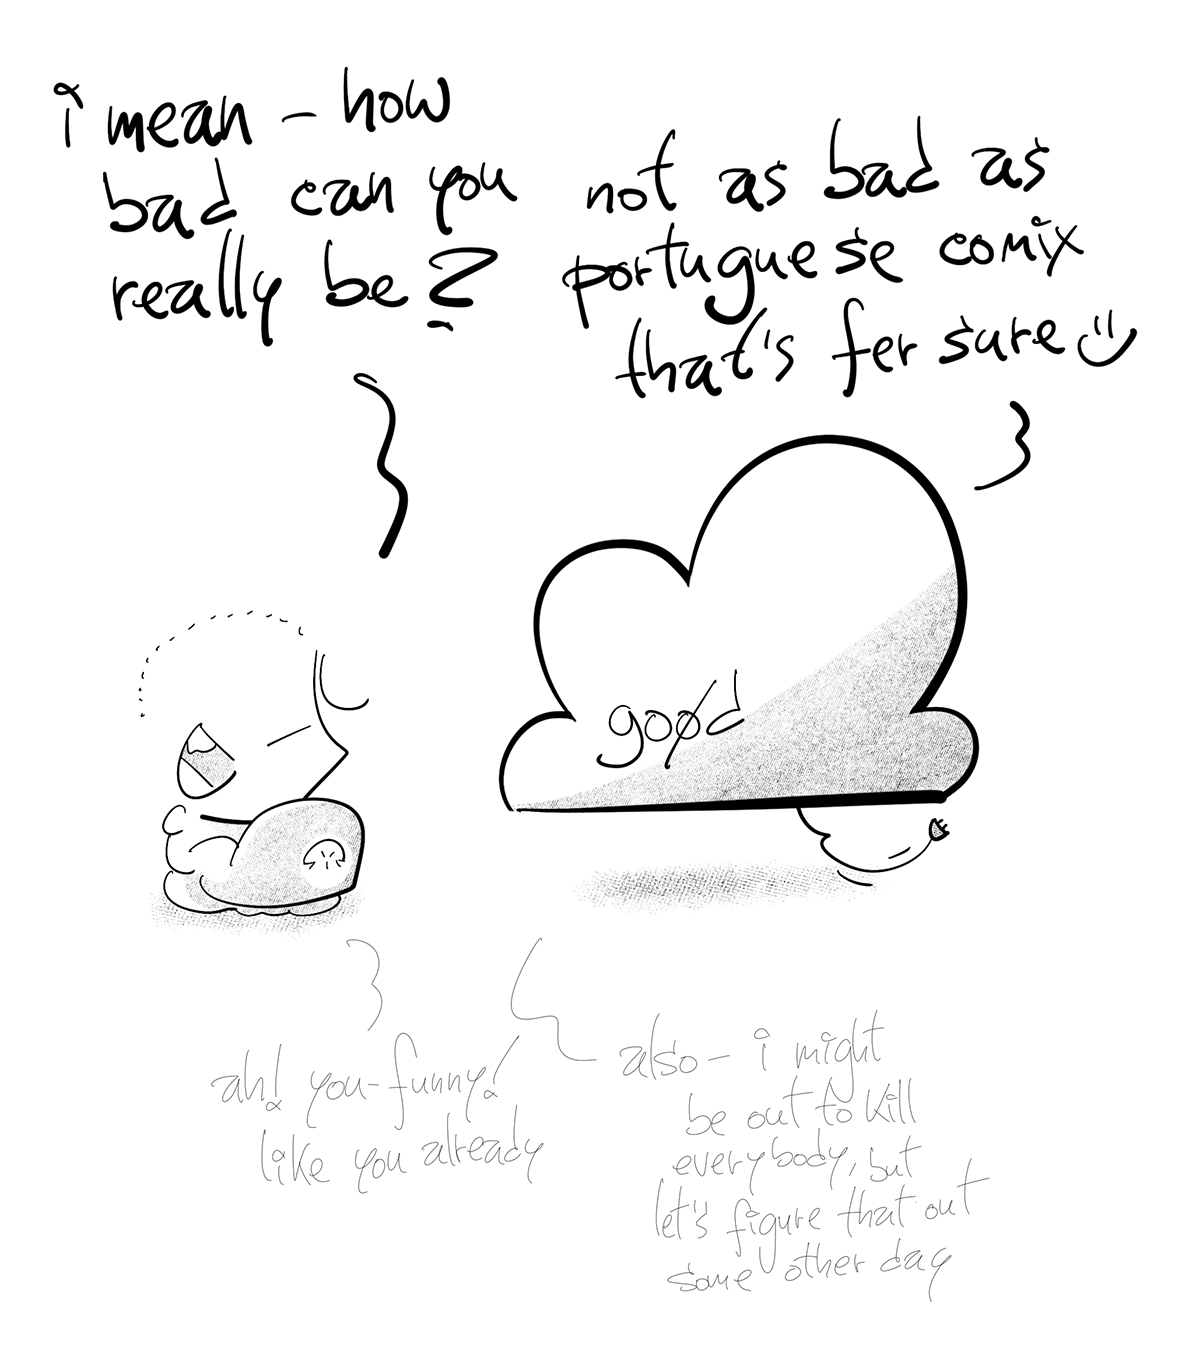 i mean - how
bad can you
really be?
not as bad as
portuguese comix
that's fer sure
goød
ah! you-funny!
like you already
also - i might
be out to kill
everybody, but
let's figure that out
some other day